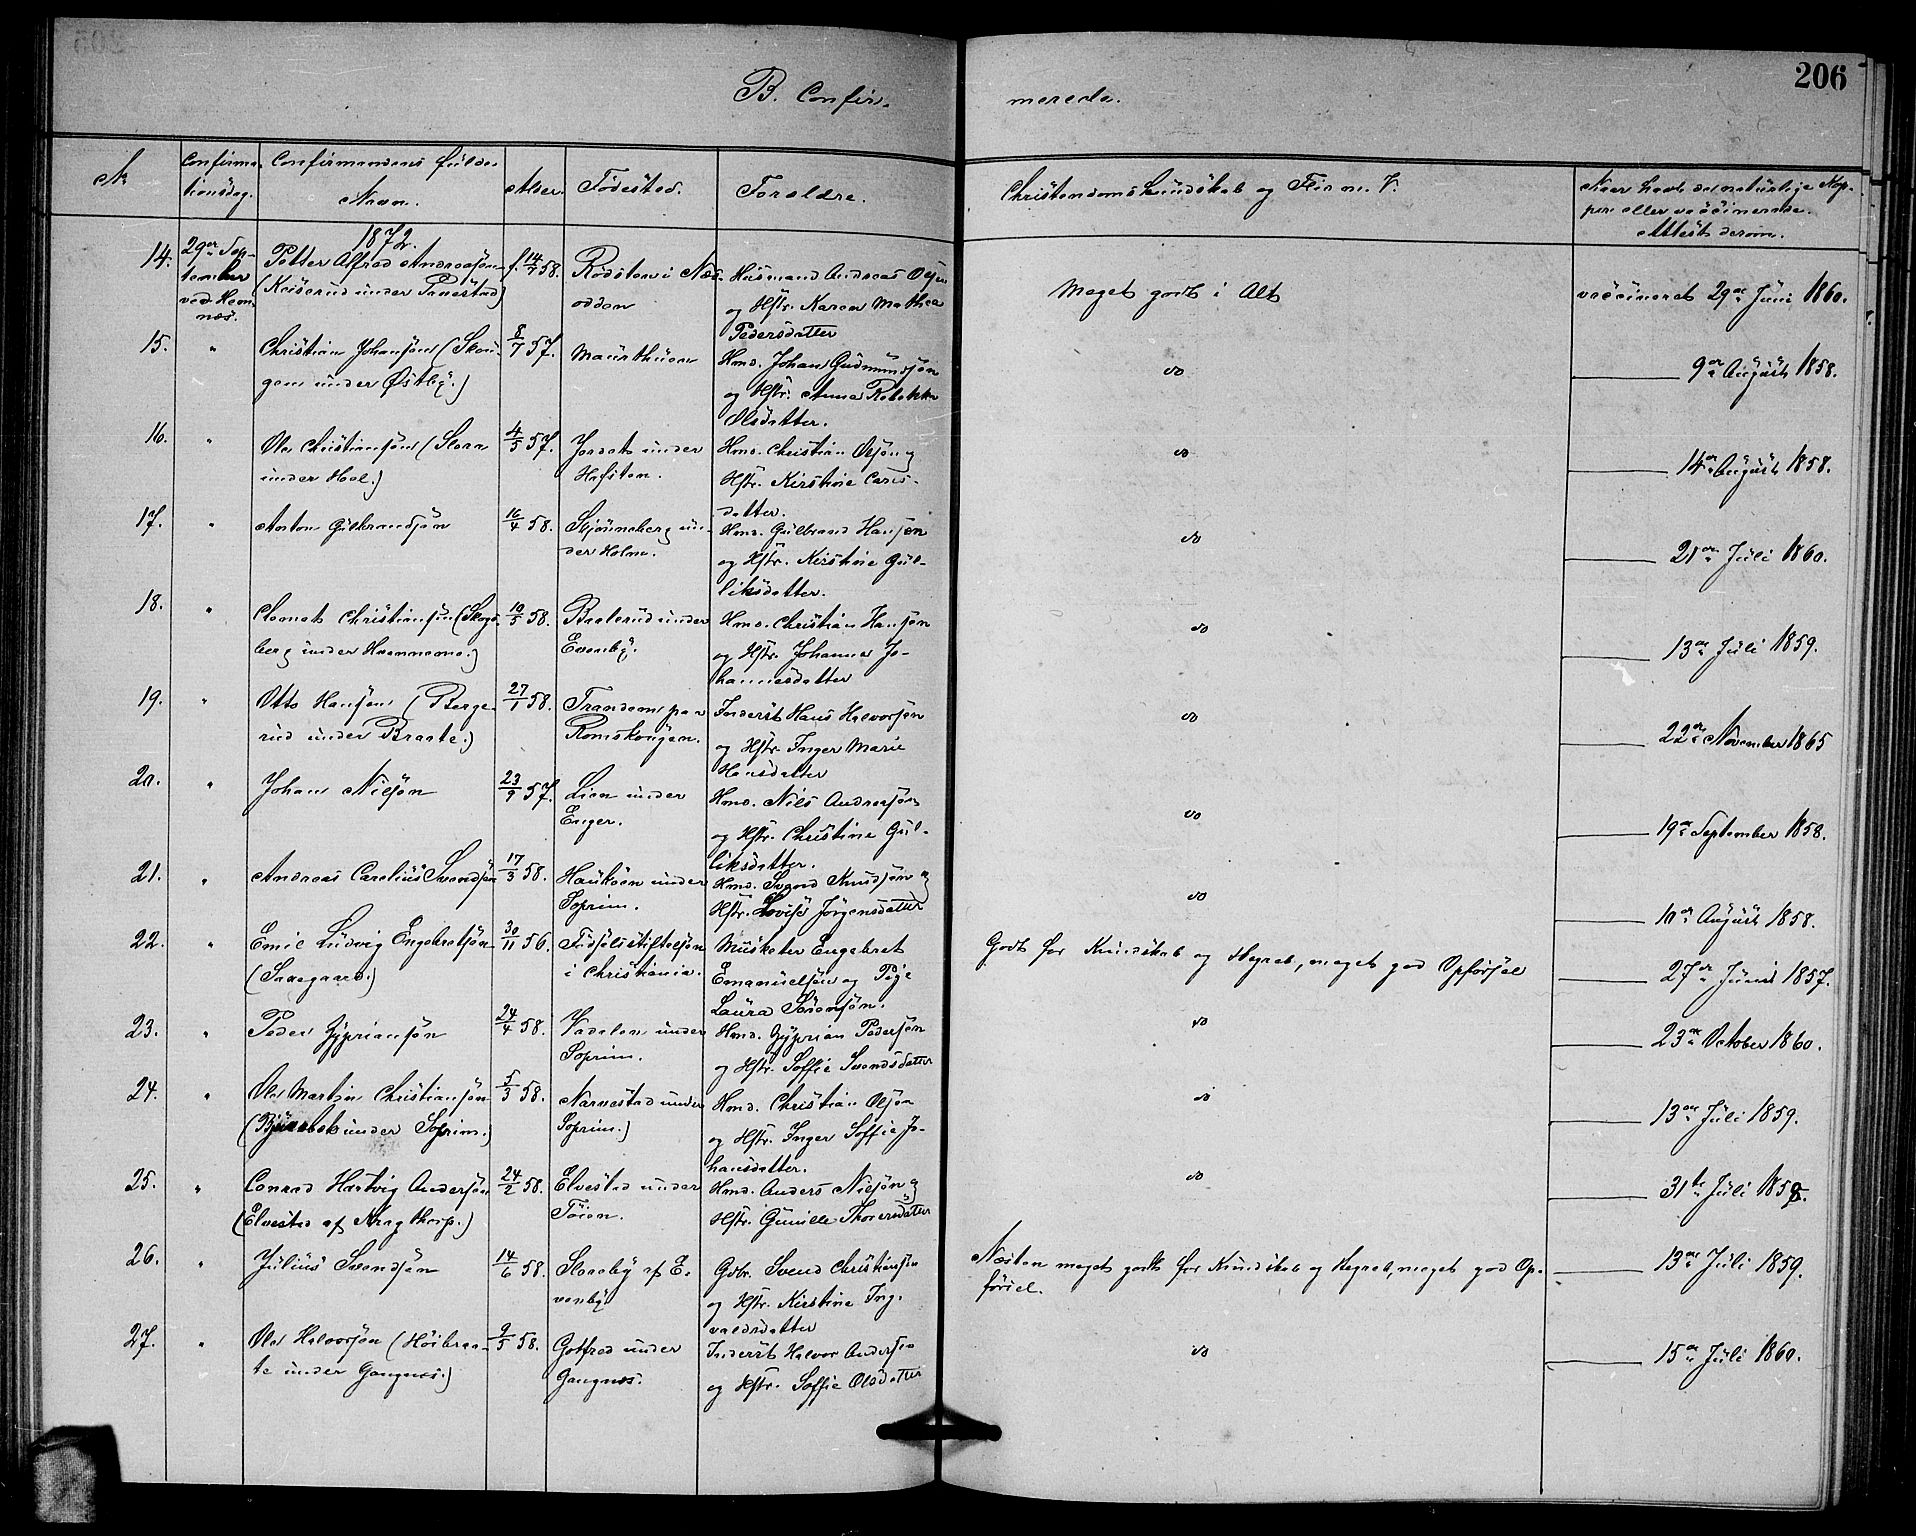 206
B. Confir-
merede.
№
Confirma-
tionsdag.
Confirmandens fulde
Navn.
Alder.
Fødested.
Forældre.
Christendoms Kundskab og Flid m. V.
Naar havt de naturlige Kop-
per eller vaccinerede.
Attest derom.
1872.
14.
29de Sep-
tember
ved Hem-
næs.
Petter Alfred Andreasøn
(Keiserud under Tanestad)
f. 14/7 58.
i Næs-
odden
Husmand Andreas Olsen
og Hstr. Karen Mathea
Pedersdatter
Meget godt i Alt
vaccineret 29de Juni 1860.
15.
"
Christian Johansøn (Skou-
gen under Østby.)
8/7 57.
Maurthuen
Hmd. Johan Gudmundsøn
og Hstr. Anna Rebekka
Olsdatter.
do
9de August 1858.
16.
"
Ole Christiansøn (Slora
under Hol.)
4/5 57.
Jordet under
Hofsten.
Hmd. Christian Olsøn og
Hstr. Kirstine Carls-
datter.
do
14de August 1858.
17.
"
Anton Gulbrandsøn
16/4 58.
Skjønneberg un-
der Holm.
Hmd. Gulbrand Hansøn
og Hstr. Kirstine Gul-
liksdatter.
do
21de Juli 1860.
18.
"
Clemet Christiansøn (Skogs-
berg under Hvammene.)
10/5 58.
Bralerud under
Evenby.
Hmd. Christian Hansøn
og Hstr. Johanna Jo-
hannesdatter
do
13de Juli 1859.
19.
"
Otto Hansøn (Berge-
rud under Braate.)
27/1 58.
Trandem paa
Romskougen.
Inderst Hans Halvorsøn
og Hstr. Inger Marie
Hansdatter
do
22de November 1865
20.
"
Johan Nilsøn
23/9 57.
Lien under
Enger.
Hmd. Nils Andreasøn
og Hstr. Christine Gul-
liksdatter.
do
19de September 1858.
21.
"
Andreas Carelius Svendsøn
17/3 58.
Haukaen under
Soprim.
Hmd. Svend Knudsøn og
Hstr. Lovise Jørgensdatter
do
10de August 1858.
22.
"
Emil Ludvig Engebretsøn
(Saxegaard.)
30/11 56.
Fødselsstiftelsen
i Christiania.
Musketer Engebret
Emanuelsøn og Pige
Laura Sørensøn.
Godt for Kundskab og Begreb, meget god Opførsel
27de Juni 1857.
23.
"
Peder Zyprianøn
24/4 58.
Vadalen under
Soprim.
Hmd. Zyprian Pedersøn
og Hstr. Soffie Svendsdatter
do
23de October 1860.
24.
"
Ole Martin Christiansøn
(Bjørnebek under Soprim.)
5/3 58.
Narvestad under
Soprim.)
Hmd. Christian Olsøn
og Hstr. Inger Soffie Jo-
hansdatter.
do
13de Juli 1859.
25.
"
Conrad Hartvig Andersøn
(Elvestad af Kragthorp.)
24/2 58.
Elvestad under
Tøien.
Hmd. Anders Nilsøn og
Hstr. Gunille Thoresdatter
do
31te Juli 1858.
26.
"
Julius Svendsøn
14/6 58.
Sloreby af E-
venby
Gdbr. Svend Christiansøn
og Hstr. Kirstine Ing-
valdsdatter
Næsten meget godt for Kundskab og Begreb, meget god Op-
førsel.
13de Juli 1859.
27.
"
Ole Halvorsøn (Høibraa-
te under Gangnæs.)
9/5 58.
Gotfred under
Gangnæs.
Inderst Halvor Andersen
og Hstr. Soffie Olsdatter
do
15de Juli 1860.